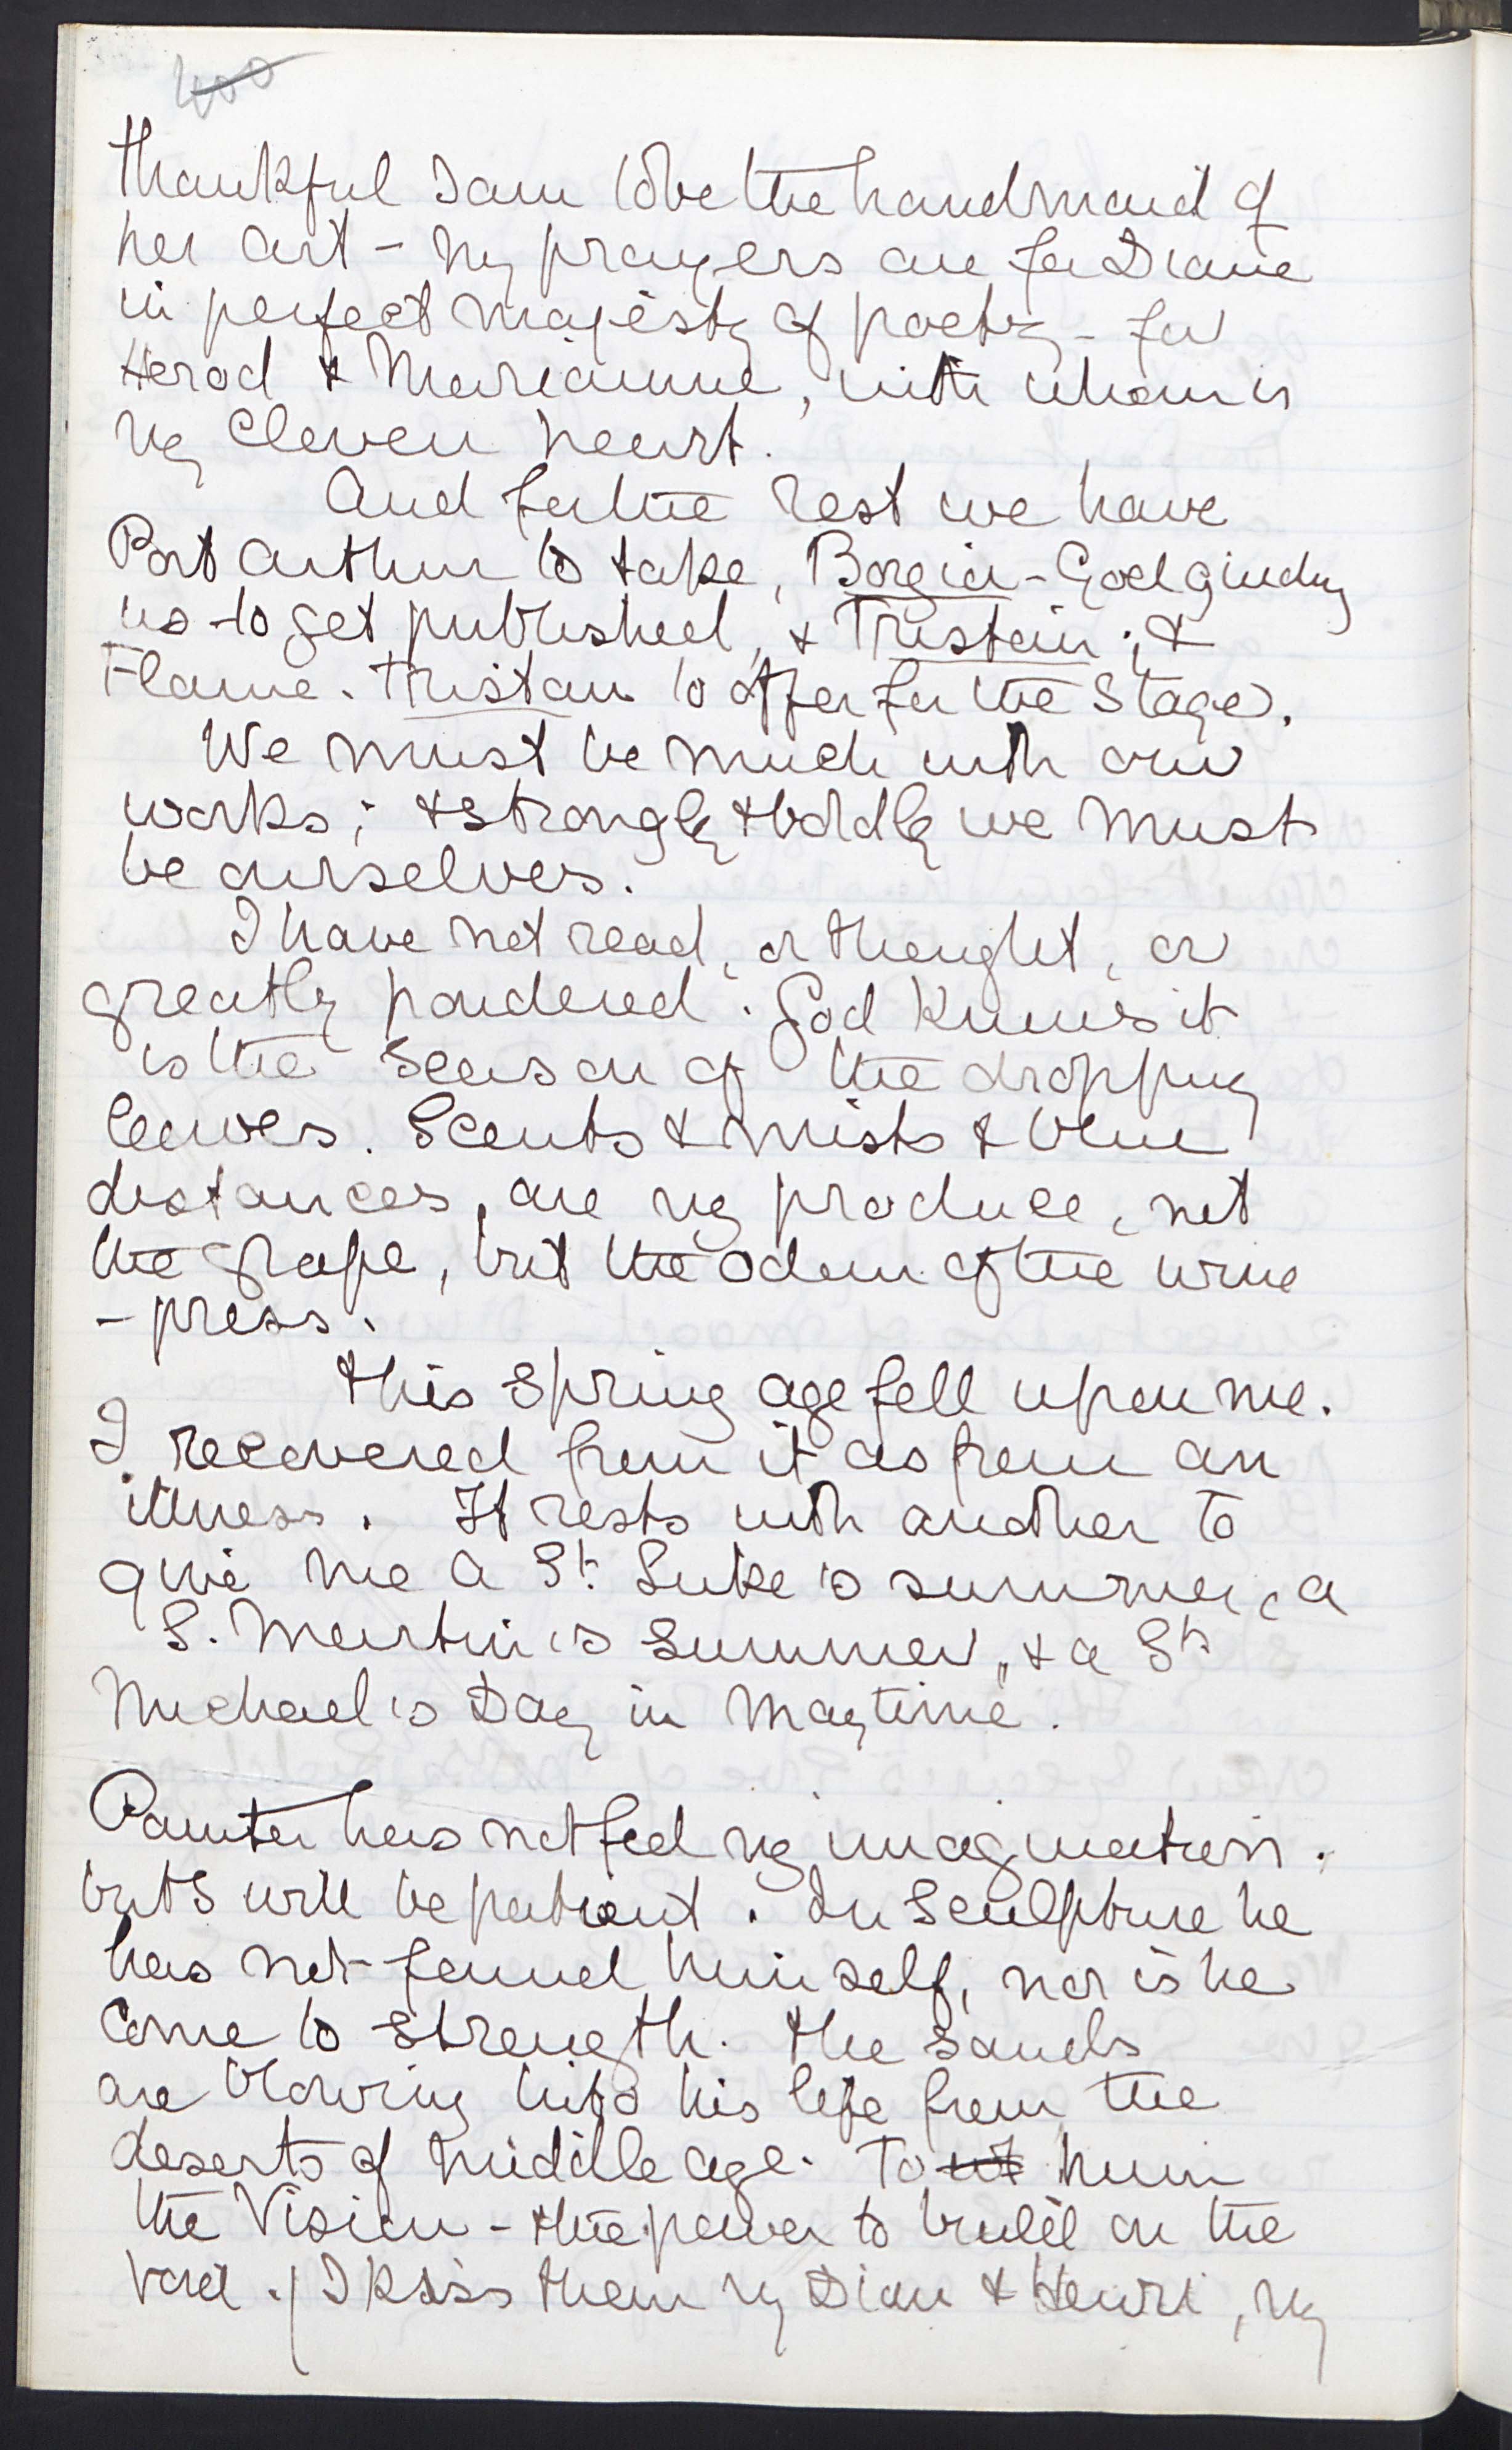 400
thankful I am to be the handmaid of
her art - my prayers are for Diane
in perfect majesty of poetry - for
Herod & Mariamne, with whom is
my cloven heart.
And for the rest we have
Port Arthur to take, Borgia - God guiding
us - to get published, & Tristan; &
Flame. Tristan to offer for the Stage.
We must be much with our
works; & strongly & boldly we must
be ourselves.
I have not read, or thought, or
greatly pondered. God knows it
is the season of the dropping
leaves. Scents & mists & blue
distances, are my produce, not
the grape, but the odour of the wine
-press.
This Spring age fell upon me.
I recovered from it as from an
illness. It rests with another to
give me a St. Luke's summer, a
S. Martin's Summer, & a St
Michael's Day in Maytime.
Painter has not fed my imagination.
but I will be patient. In Sculpture he
has not found himself, nor is he
come to strength. The sands
are blowing into his life from the
deserts of middle age. To him
the Vision - the power to build on the
void. / I kiss them my Dian & Henri, my